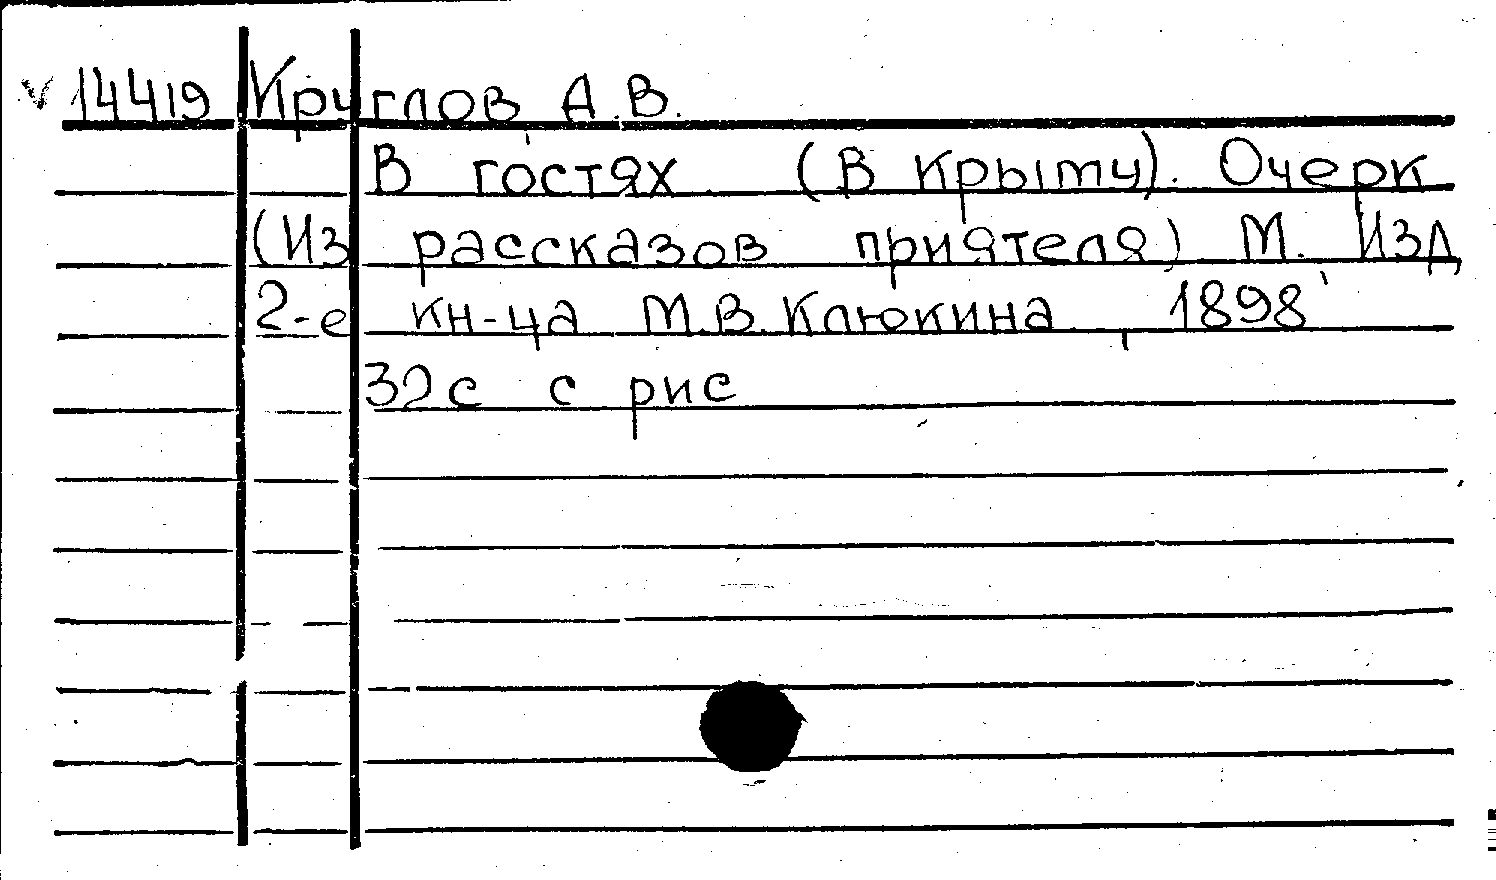 √ 14419 Круглов А.В.
В гостях (В Крыту). Очерк
(Из рассказов приятеля) М. Изд
2-е кн-ца М.В. Клюкина, 1898
32с с рис